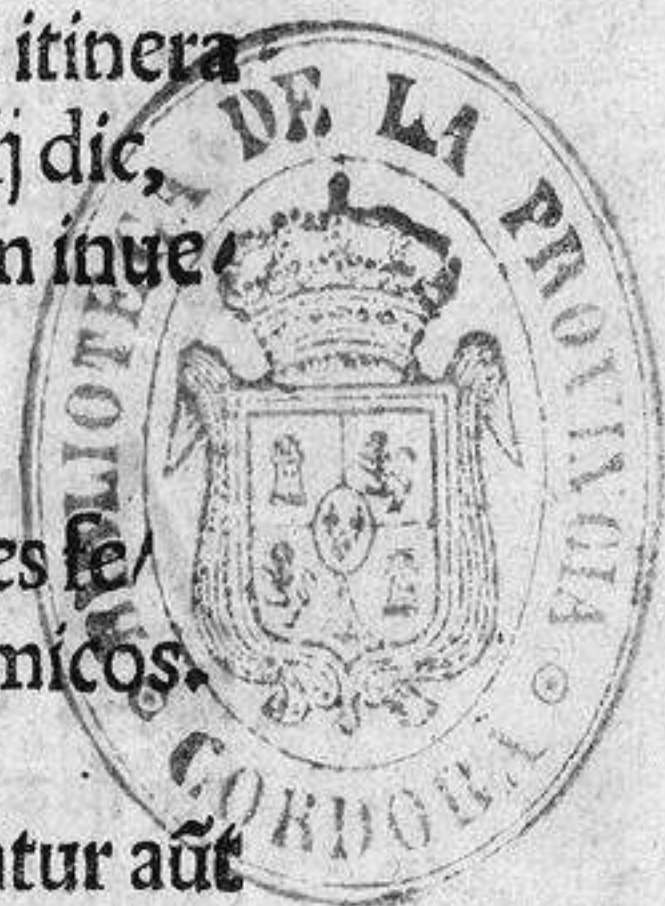 itinera
ij dic,
n inue/
es fe/
micos.
ntur aũt
BIBLIOTECA DE LA PROVINCIA
CORDOBA